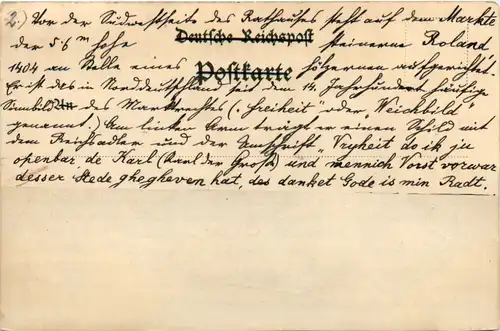 2.) Vor der Südwestseite des Rathauses steht auf dem Markte
Deutsche Reichspost
der 5 5 m hohe steinerne Roland
1404 an Stelle eines hölzernen aufgerichtet.
Postkarte
Er ist das in Norddeutschland seit dem 14. Jahrhundert häufige
Sinnbild An des Marktrechts („Freiheit" oder „Weichbild
genannt.) Am linken Arm trägt er einen Schild mit
dem Reichsadler und der Umschrift: Vryheit do ik ju
openbar de Karl (Karl der Große) und mennich Vorst vorwar
desser Stede ghegheven hat, des danket Gode is min Radt.